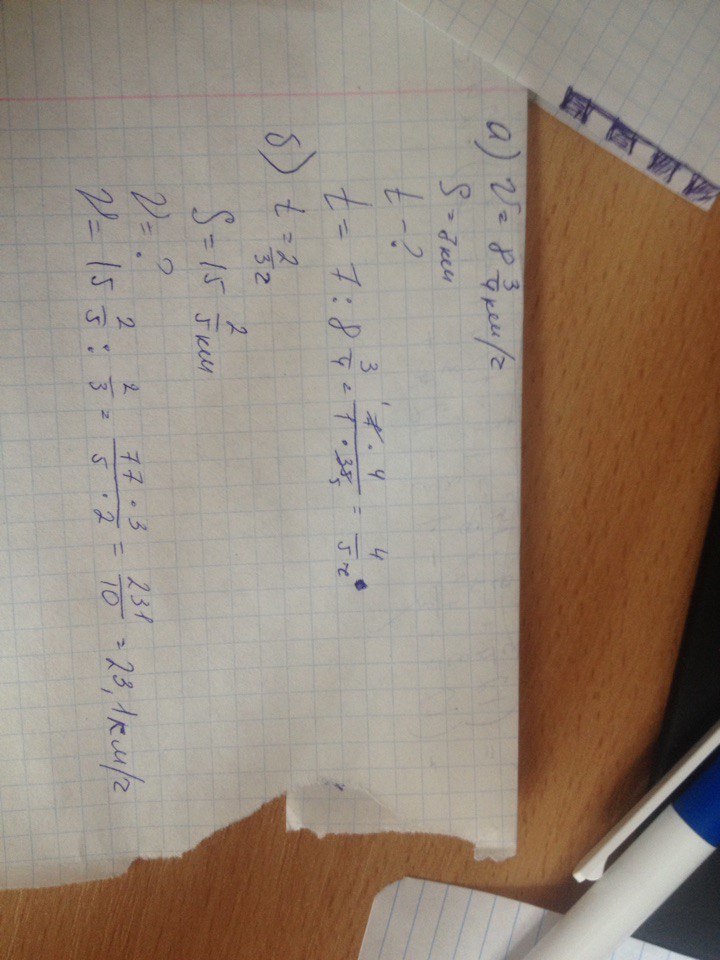 а) V = 8 3/4 км/ч
S = 7 км
t - ?
t = 7 : 8 3/4 = 7 · 4 / 1 · 35 = 4/5 ч.
б) t = 2/3 ч
S = 15 2/5 км
V = ?
V = 15 2/5 : 2/3 = 77 · 3 / 5 · 2 = 231/10 = 23,1 км/ч